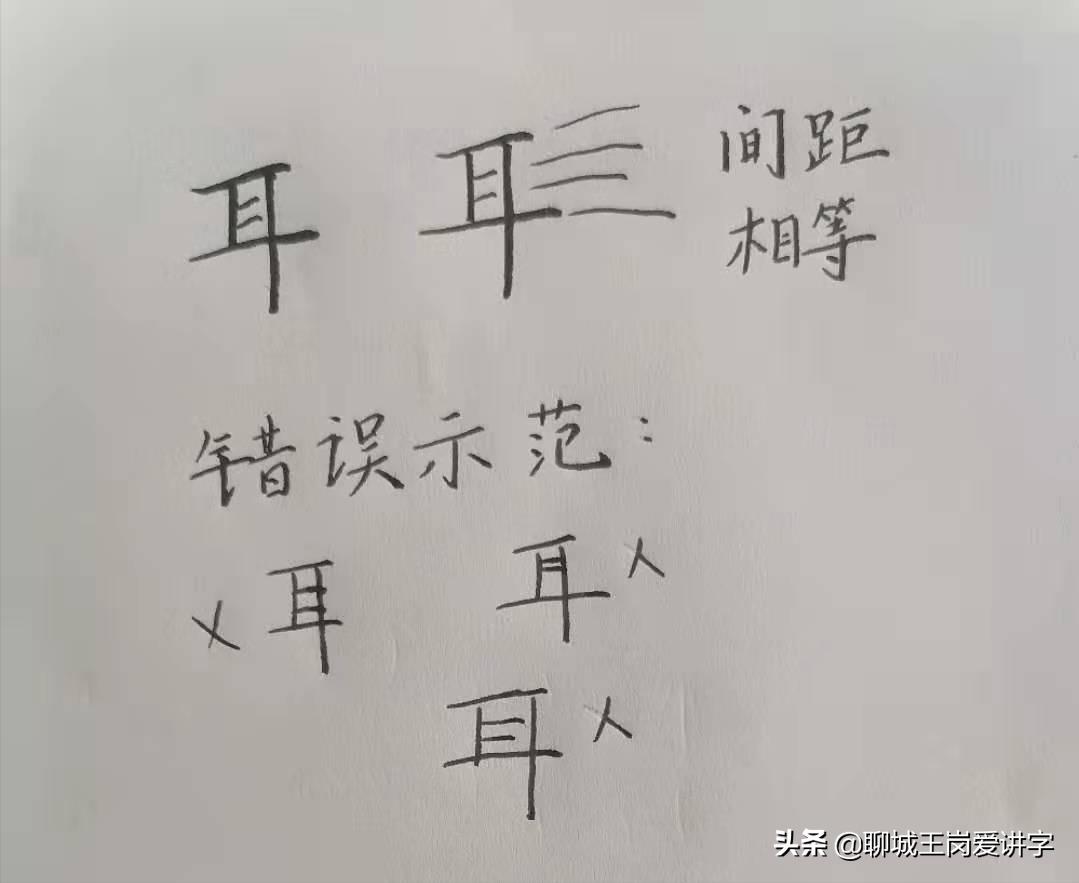 耳 耳 间距
相等
错误示范：
×耳 耳×
耳×
头条 @聊城王岗爱讲字